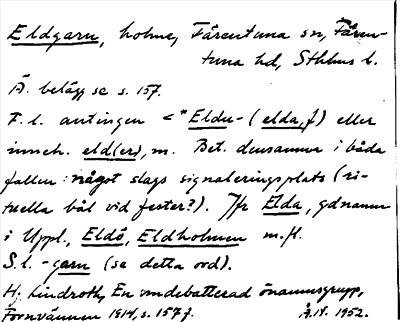 Eldgarn, holme, Färentuna sn, Fären-
tuna hd, Sthlms l.
Ä. belägg se s. 157.
F.l. antingen < *Eldu- (elda, f.) eller
inneh. eld(er), m. Bet. densamma i båda
fallen: något slags signaleringsplats (ri-
tuella bål vid fester?). Jfr Elda, gdnamn
i Uppl., Eldö, Eldholmen m.fl.
S.l. -garn (se detta ord).
Hj. Lindroth, En omdebatterad önamnsgrupp,
Fornvännen 1914, s. 157 f. 1952.